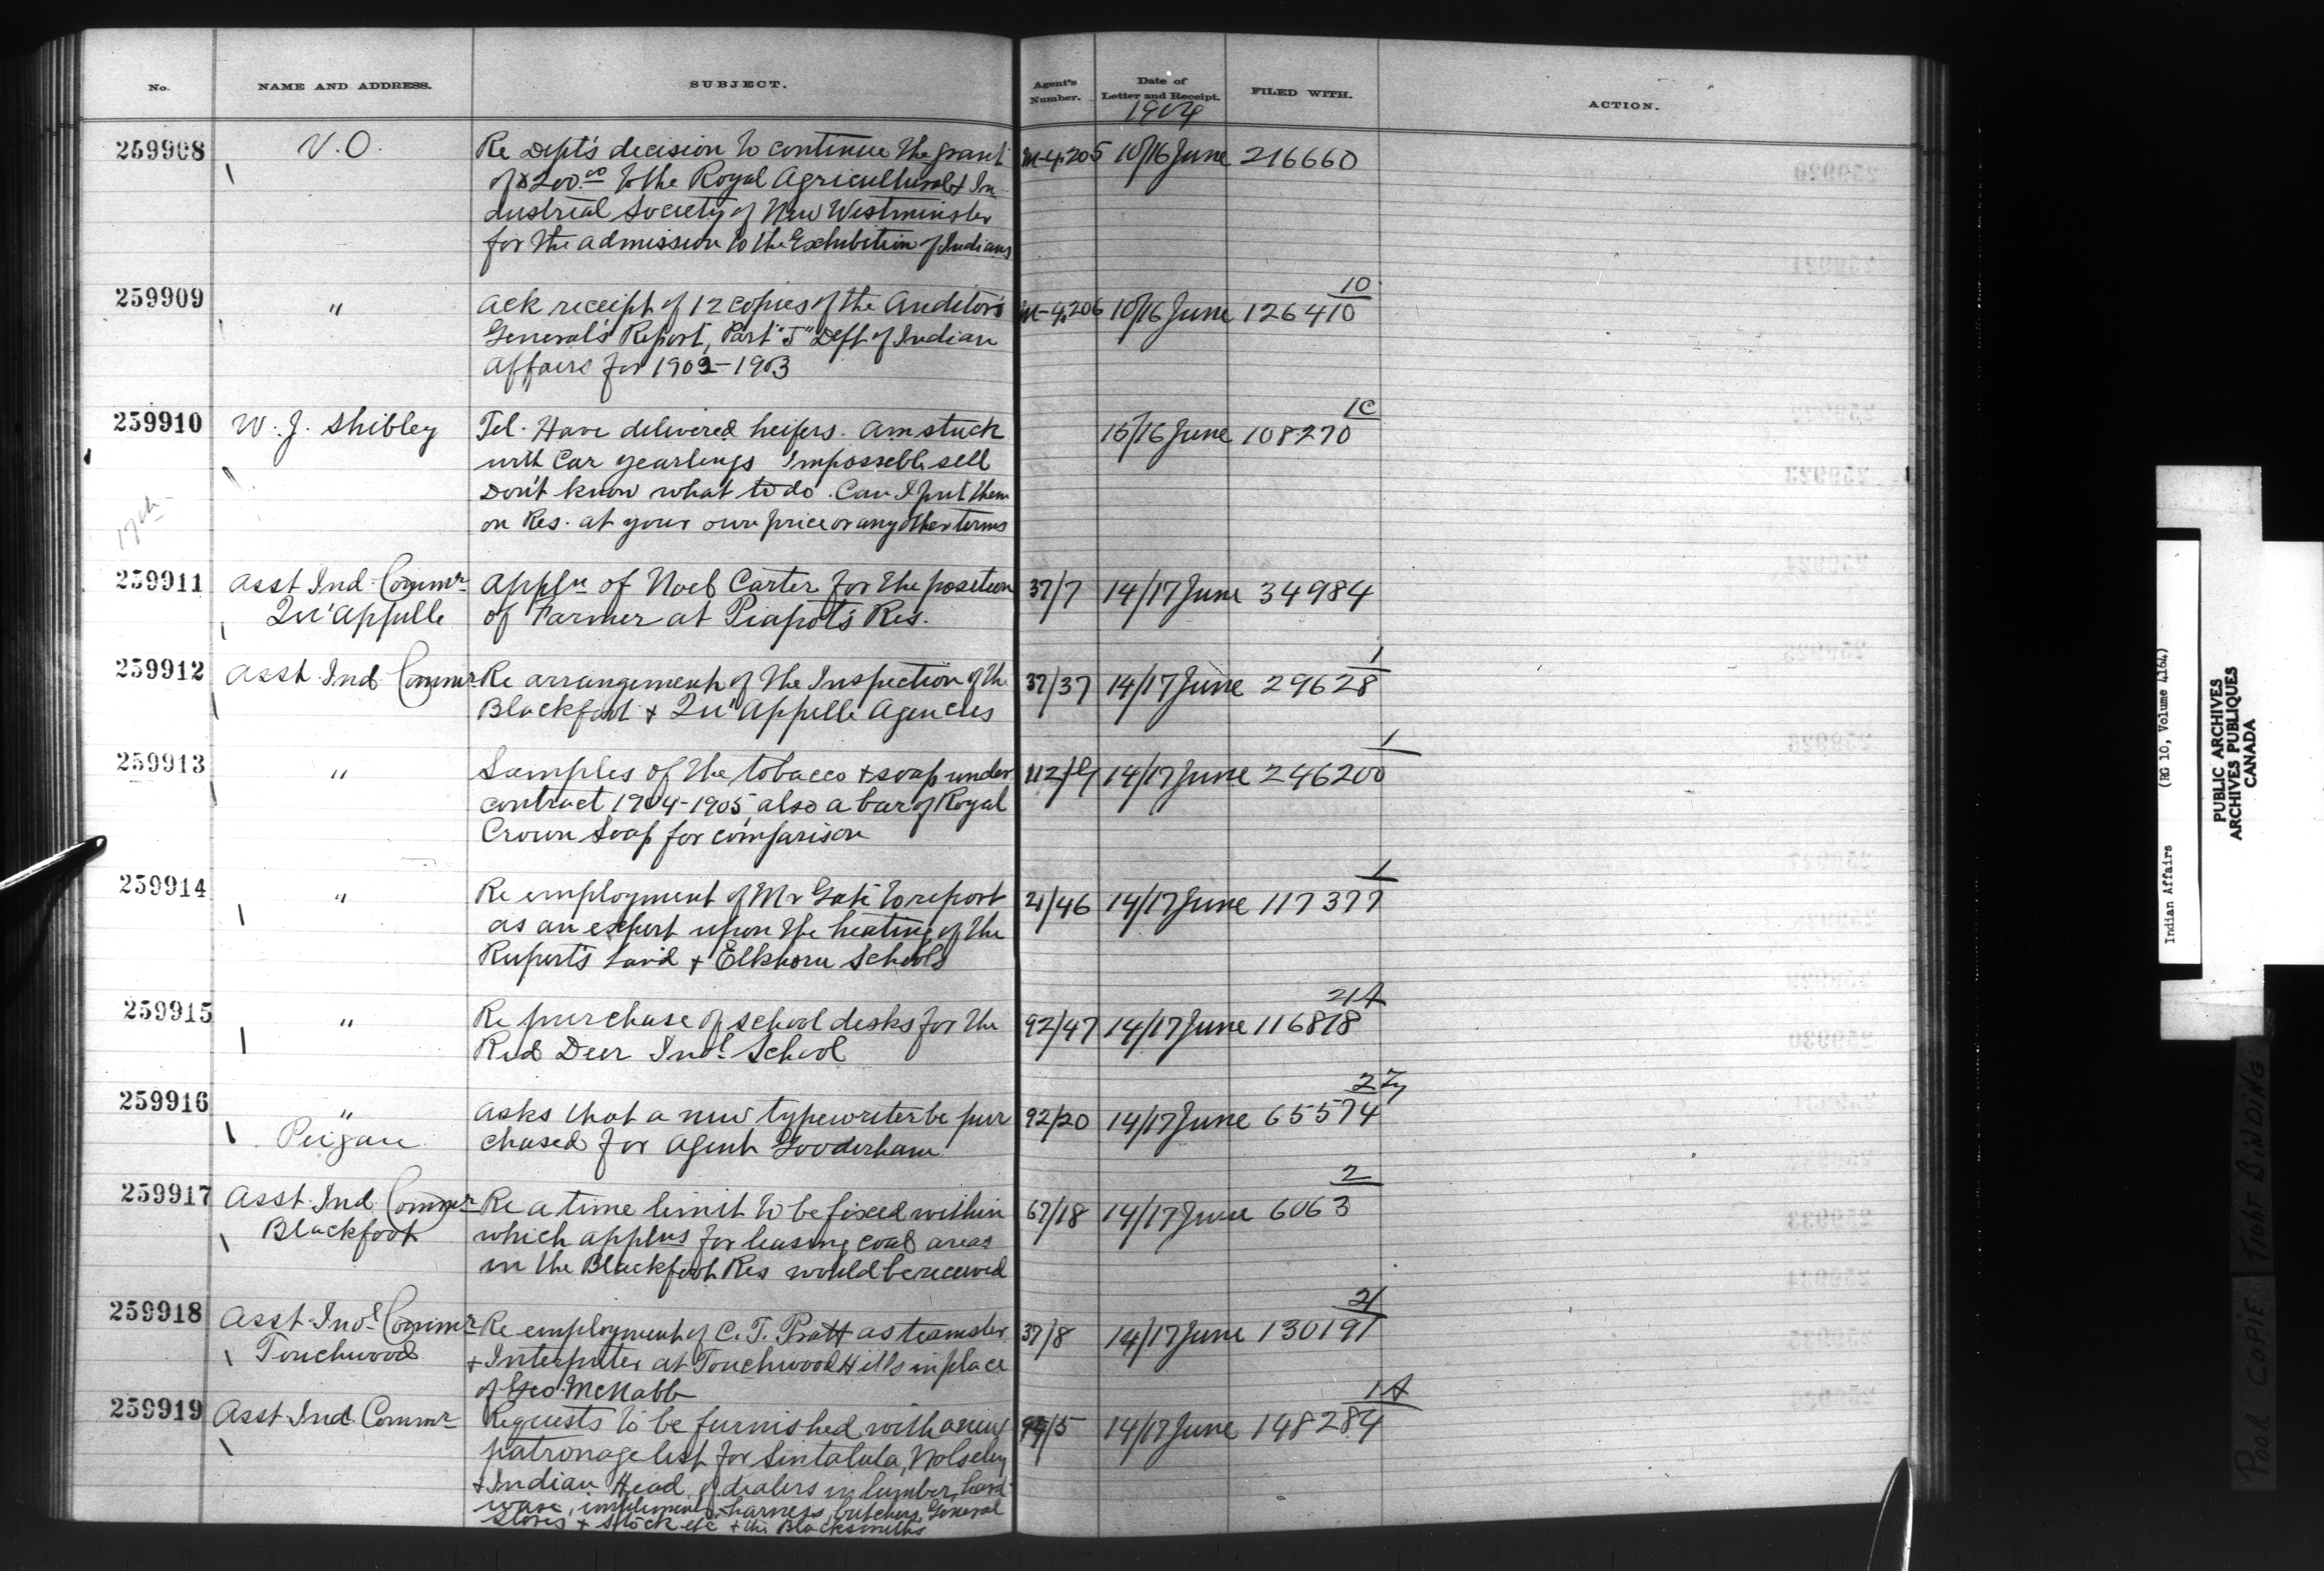 No. NAME AND ADDRESS. SUBJECT. Agent's Number. Date of Letter and Receipt. FILED WITH. ACTION.
1904
259908 V.O. Re Dept's decision to continue the grant M-4,205 10/16 June 216660
of $200.00 to the Royal Agricultural & In
dustrial Society of New Westminster
for the admission to the Exhibition of Indians
10
259909 " Ack receipt of 12 copies of the Auditor's M-4,206 10/16 June 126410
General's Report, Part "J" Dept of Indian
Affairs for 1902-1903
1C
259910 W. J. Shibley Tel. Have delivered heifers. Am stuck 15/16 June 108270
with Car yearlings Impossible sell
Don't know what to do. Can I put them
on Res. at your own price or any other terms
17th
259911 Asst Ind Commr Appln of Noel Carter for the position 37/7 14/17 June 34984
Qu'Appelle of Farmer at Piapot's Res.
1
259912 Asst Ind Commr Re arrangement of the Inspection of the 37/37 14/17 June 29628
Blackfoot & Qu'Appelle Agencies
1
259913 " Samples of the tobacco & soap under 14/17 June 246200
contract 1904-1905, also a bar of Royal
Crown Soap for comparison
1
259914 " Re employment of Mr to report 21/46 14/17 June 117377
as an expert upon the heating of the
Rupert's Land & Elkhorn Schools
21A
259915 " Re purchase of school desks for the 92/47 14/17 June 116818
Red Deer Indl School
2
259916 " Asks that a new typewriter be pur 92/20 14/17 June 65574
Peigan chased for Agent Gooderham
2
259917 Asst. Ind Commr Re a time limit to be fixed within 67/18 14/17 June 6063
Blackfoot which applns for leasing coal areas
in the Blackfoot Res would be received
21
259918 Asst. Ind Commr Re employment of C. T. Pratt as teamster 37/8 14/17 June 130191
Touchwood & Interpreter at Touchwood Hills in place
of Geo McNabb
1A
259919 Asst Ind. Commr Requests to be furnished with a new 14/17 June 148284
patronage list for Sintaluta, Wolseley
& Indian Head of dealers in lumber, hard
ware, implements, harness, butchers, General
Stores & Stock etc & the Blacksmiths
Indian Affairs (RG 10, Volume 4164)
PUBLIC ARCHIVES
ARCHIVES PUBLIQUES
CANADA
POOR COPIE TIGHT BINDING